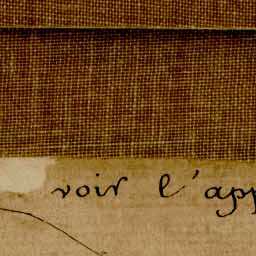 voir l'app